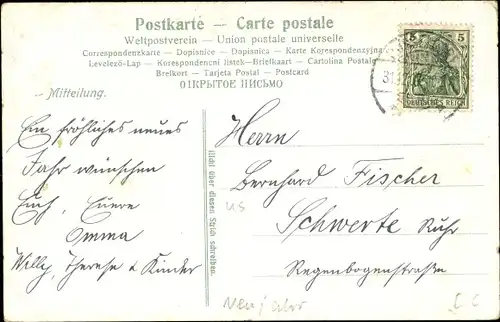 Postkarte – Carte postale
Weltpostverein – Union postale universelle
Correspondenzkarte – Dopisnice – Dopisnica – Karte Korespondenzyjna
Levelező-Lap – Korespondencní lístek – Briefkaart – Cartolina Postale
Brefkort – Tarjeta Postal – Postcard
ОТКРЫТОЕ ПИСЬМО
5 5
DEUTSCHES REICH
31
Mitteilung.
Ein fröhliches neues
Jahr wünschen
Euch, Euere
Omma
Willy, Therese & Kinder
Nicht über diesen Strich schreiben.
Herrn
Bernhard Fischer
Schwerte Ruhr
Regenbogenstraße
US
Neujahr